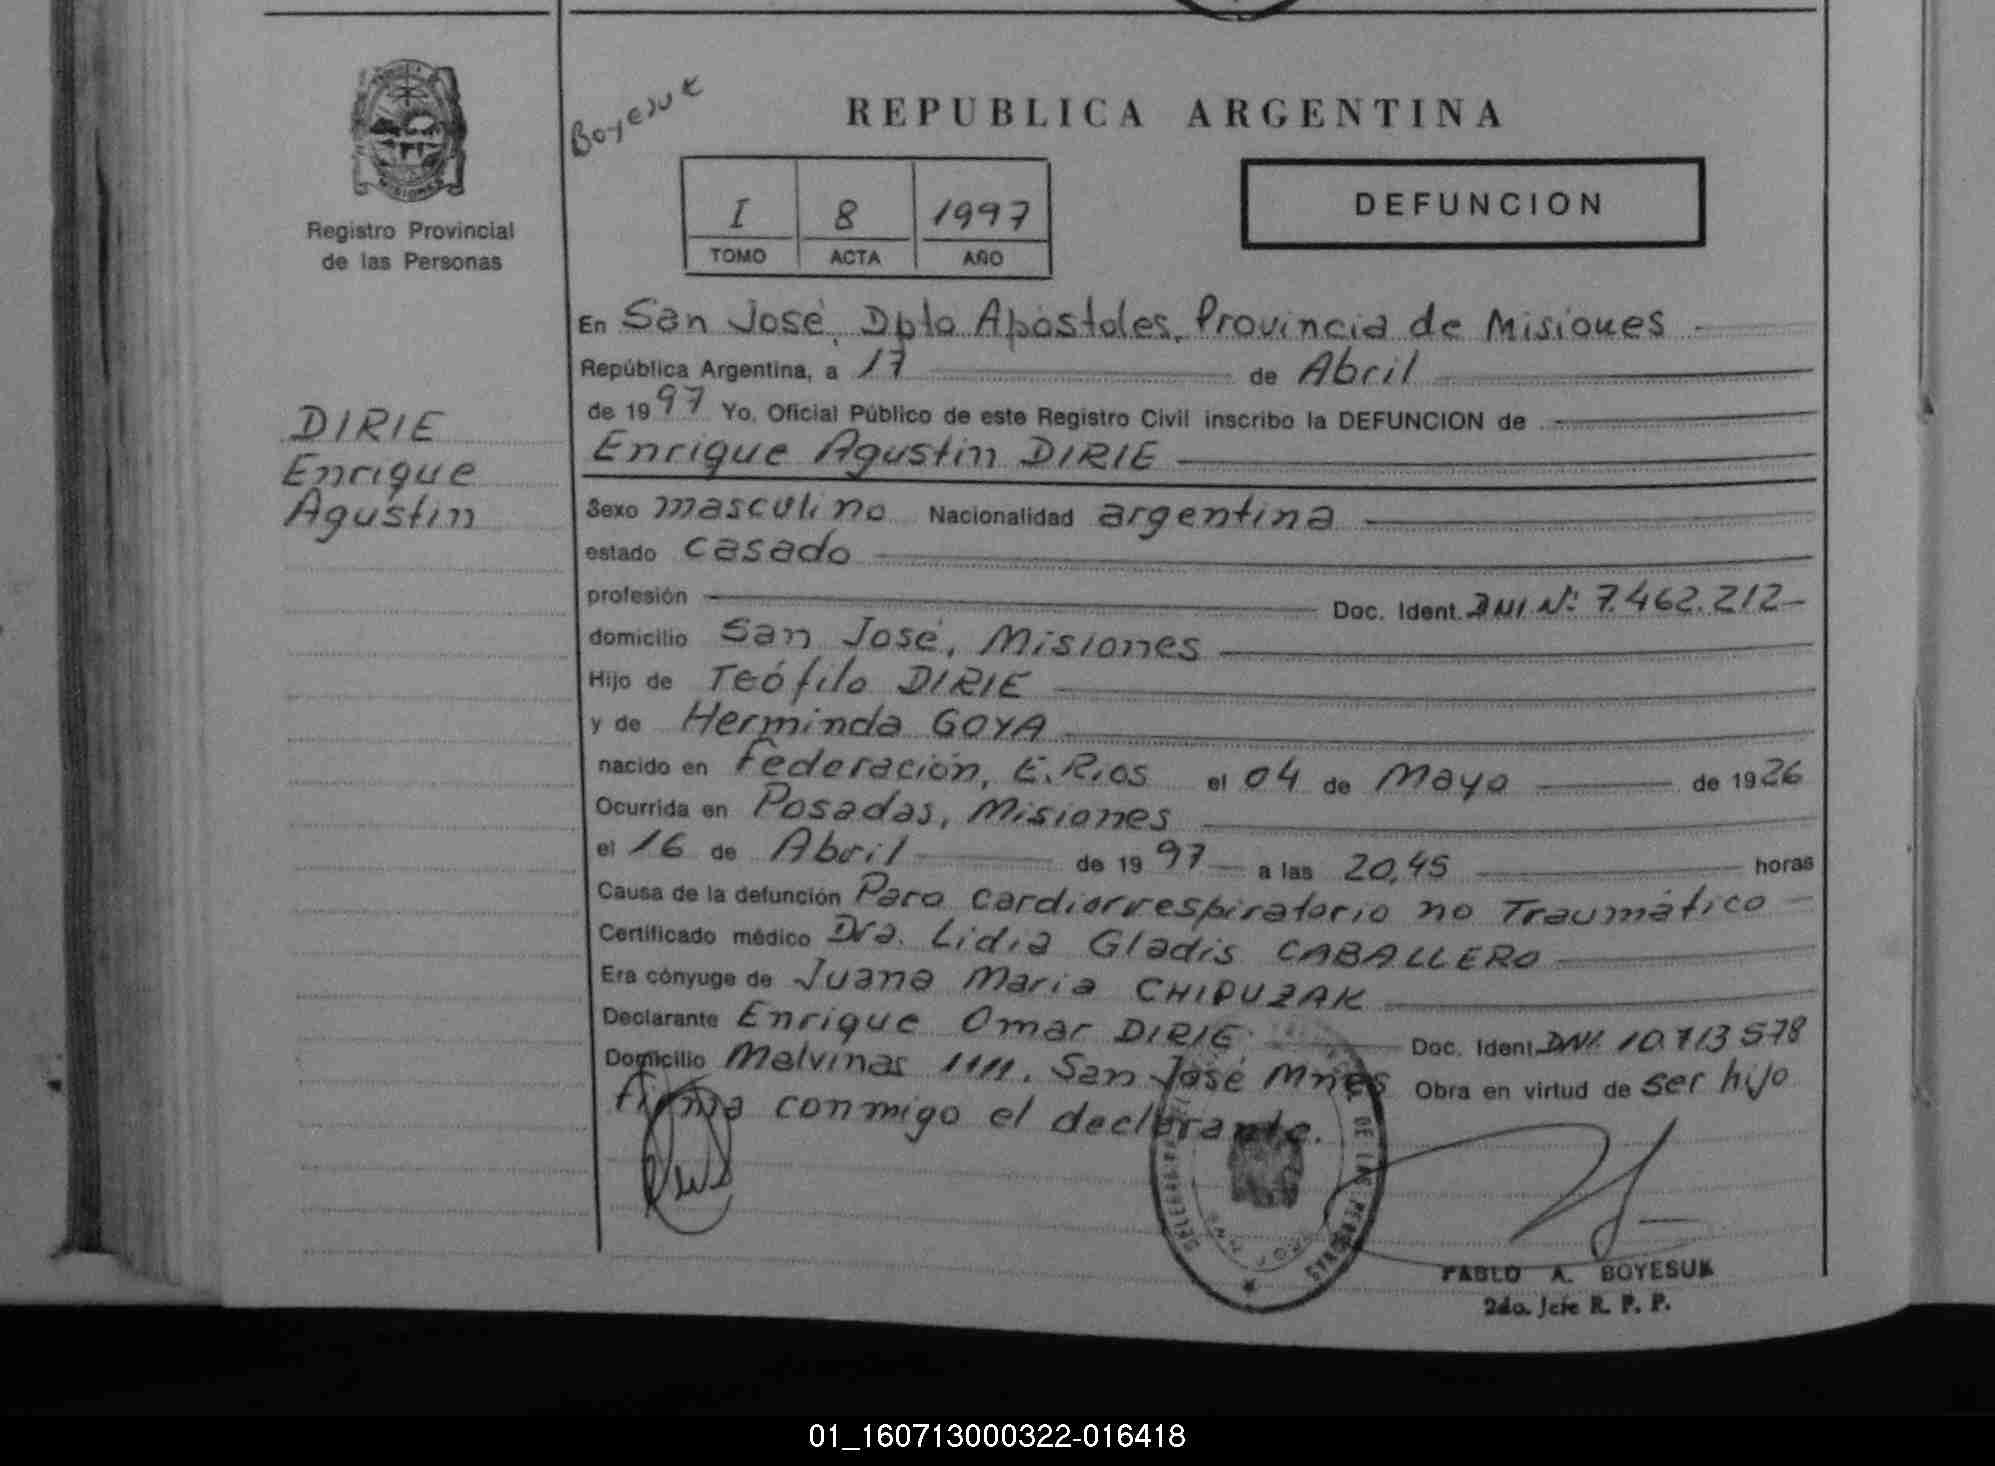 Boyesuk
REPUBLICA ARGENTINA
MISIONES
Registro Provincial
de las Personas
I 8 1997
TOMO ACTA AÑO
DEFUNCION
En San José, Dpto Apóstoles, Provincia de Misiones
República Argentina, a 17 de Abril
de 1997 Yo, Oficial Público de este Registro Civil inscribo la DEFUNCION de
DIRIE
Enrique
Agustin
Enrique Agustin DIRIE
Sexo masculino Nacionalidad argentina
estado casado
profesión Doc. Ident. DNI Nº 7.462.212
domicilio San José, Misiones
Hijo de Teófilo DIRIE
y de Herminda GOYA
nacido en Federación, E. Rios el 04 de Mayo de 1926
Ocurrida en Posadas, Misiones
el 16 de Abril de 1997 a las 20,45 horas
Causa de la defunción Paro cardiorrespiratorio no Traumático
Certificado médico Dra. Lidia Gladis CABALLERO
Era cónyuge de Juana Maria CHIPUZAK
Declarante Enrique Omar DIRIE Doc. Ident. DNI. 10.713.578
Domicilio Malvinas 1111, San José Mnes Obra en virtud de ser hijo
firma conmigo el declarante.
DE LAS PERSONAS
PABLO A. BOYESUK
2do. Jefe R. P. P.
01_160713000322-016418